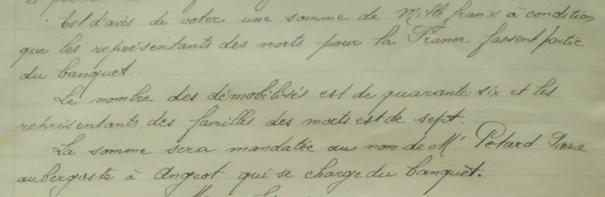 Est d'avis de voter une somme de Mille franx à condition
que les représentants des morts pour la France fassent partie
du banquet.
Le nombre des démobilisés est de quarante six et les
représentants des familles des morts est de sept.
La somme sera mandatée au nom de Mr Petard Pierre
aubergiste à Angeot qui se charge du banquet.